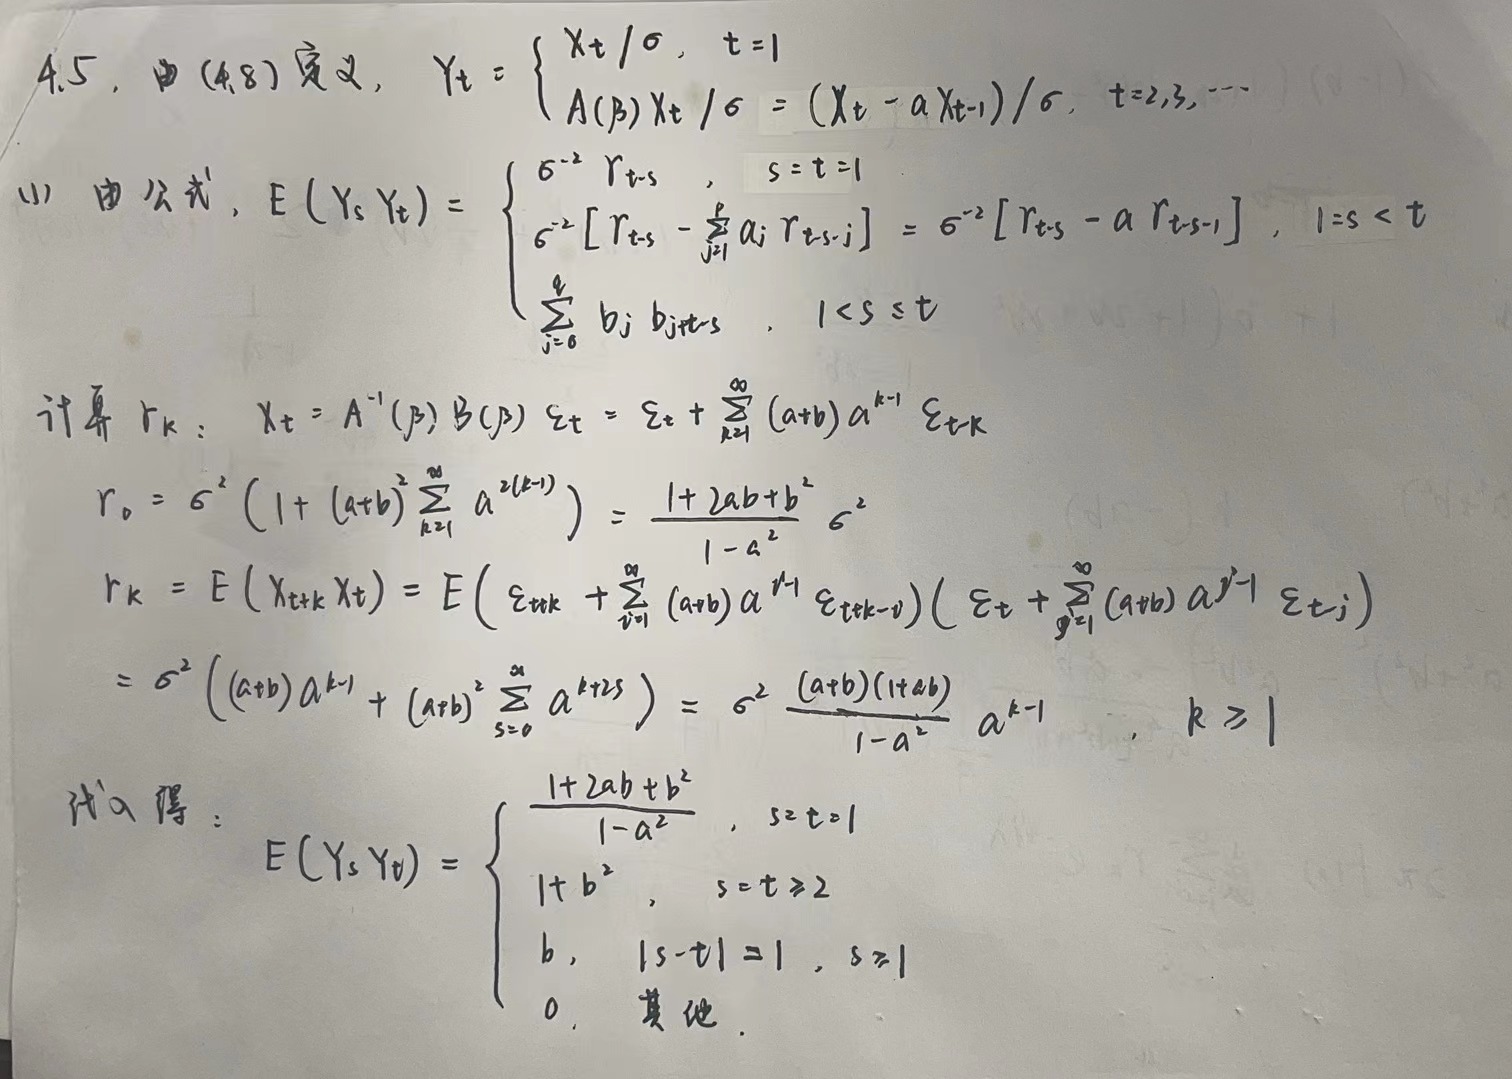 4.5. 由 (4.8) 定义, Yt = { Xt / σ, t=1
A(β) Xt / σ = (Xt - a Xt-1) / σ, t=2,3, ...
(1) 由公式, E(Ys Yt) = { σ^-2 γt-s , s=t=1
σ^-2 [γt-s - Σ_{j=1}^{p} aj γt-s-j] = σ^-2 [γt-s - a γt-s-1] , 1=s<t
Σ_{j=0}^{q} bj bj+t-s , 1<s≤t
计算 γk: Xt = A^-1(β) B(β) εt = εt + Σ_{k=1}^{∞} (a+b) a^{k-1} εt-k
γ0 = σ^2 (1 + (a+b)^2 Σ_{k=1}^{∞} a^{2(k-1)}) = (1+2ab+b^2)/(1-a^2) σ^2
γk = E(Xt+k Xt) = E(εt+k + Σ_{i=1}^{∞} (a+b) a^{i-1} εt+k-i)(εt + Σ_{j=1}^{∞} (a+b) a^{j-1} εt-j)
= σ^2 ((a+b) a^{k-1} + (a+b)^2 Σ_{s=0}^{∞} a^{k+2s}) = σ^2 (a+b)(1+ab)/(1-a^2) a^{k-1} , k ≥ 1
代入得:
E(Ys Yt) = { (1+2ab+b^2)/(1-a^2) , s=t=1
1+b^2 , s=t≥2
b, |s-t|=1 , s≥1
0, 其他.